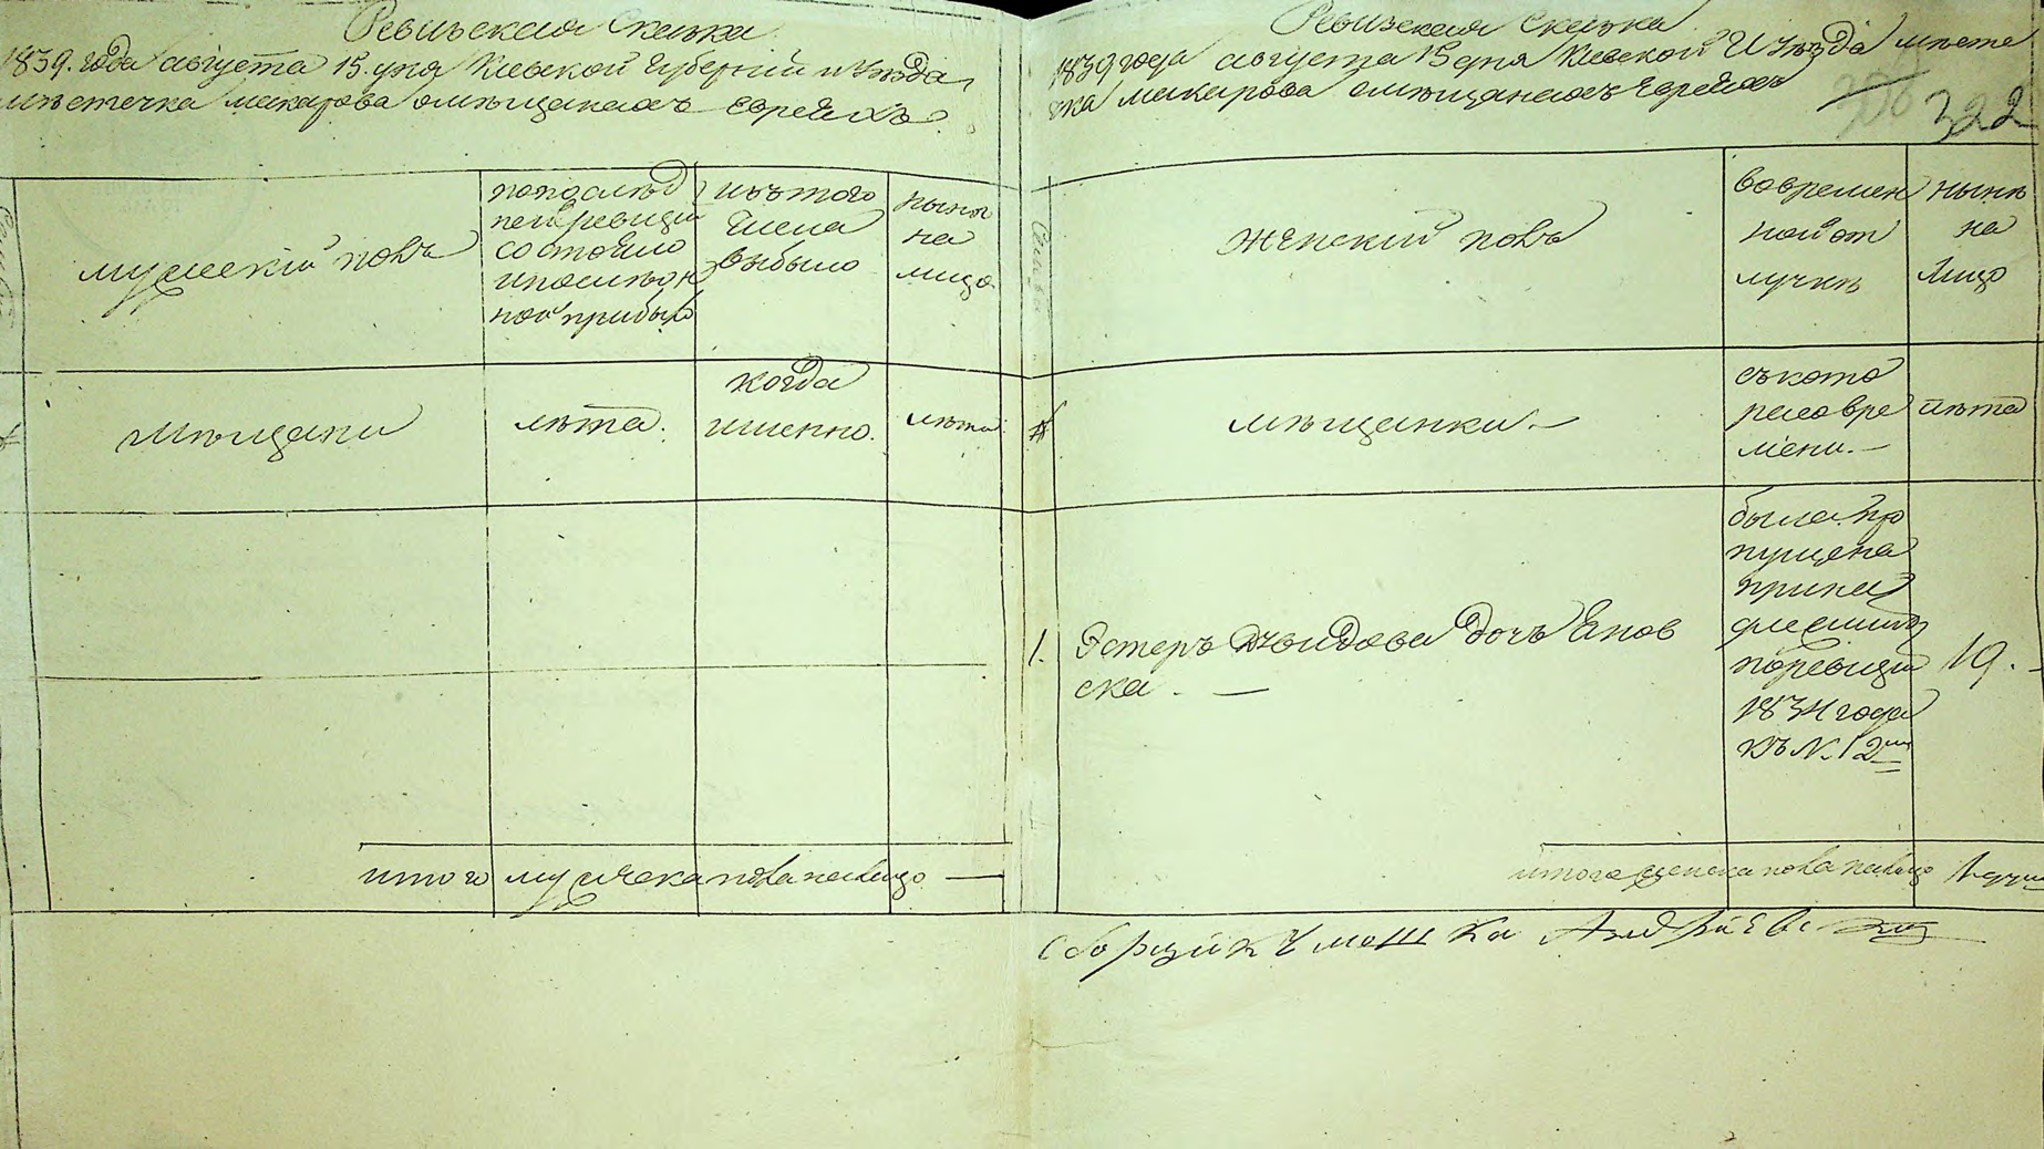 Ревизская Сказка
1839. года августа 15. дня Киевской Губернии и уезда,
местечка макарова о мещанахъ евреяхъ.
мужескій полъ
по послѣд
ней ревизіи
состояло
и послѣ он
ной прибыло
изъ того
числа
выбыло
нынѣ
на
лицо.
мещани
лѣта.
когда
именно.
лѣта.
итого мужеска пола на лицо —
Ревизская Сказка
1839 года августа 15 дня Киевской И уѣзда мѣсте
чка макарова о мѣщанахъ Евреяхъ
322
женскій полъ
во времен
ной от
лучкѣ
нынѣ
на
лицо
№
мѣщанки. —
съ кото
раго вре
мени. —
лѣта
1. Эстеръ Двидова дочь Янов
ска. —
была про
пущена
при на
ревизіи
1834 года
къ № 12
19. —
итого женска пола на лицо 1 душа
сборщикъ мошка